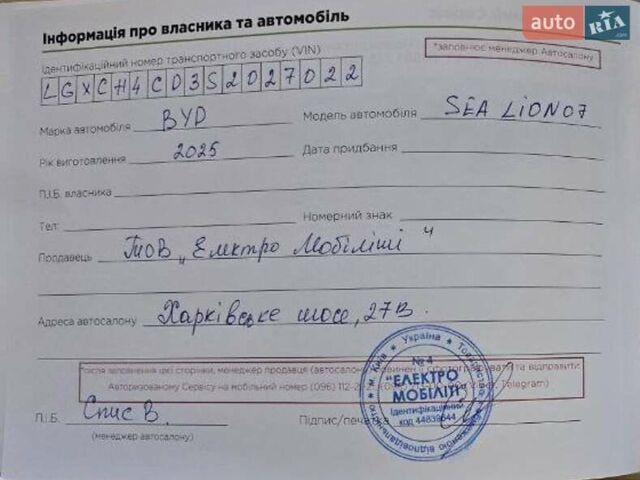 auto RIA.com
Інформація про власника та автомобіль
*заповнює менеджер Автосалону
Ідентифікаційний номер транспортного засобу (VIN)
LGXCH4CD3S2027022
Марка автомобіля BYD Модель автомобіля SEA LION 07
Рік виготовлення 2025 Дата придбання
П.І.Б. власника
Тел: Номерний знак
Продавець ТОВ „Електро Мобіліті"
Адреса автосалону Харківське шосе, 27В.
*після заповнення цієї сторінки, менеджер продавця (автосалону) повинен її сфотографувати та відправити
Авторизованому Сервісу на мобільний номер (096) 112-2 Telegram)
П.І.Б. Спис В. Підпис/печатка
(менеджер автосалону)
м. Київ * Україна *
№ 4
"ЕЛЕКТРО
МОБІЛІТІ"
Ідентифікаційний
код 44839644